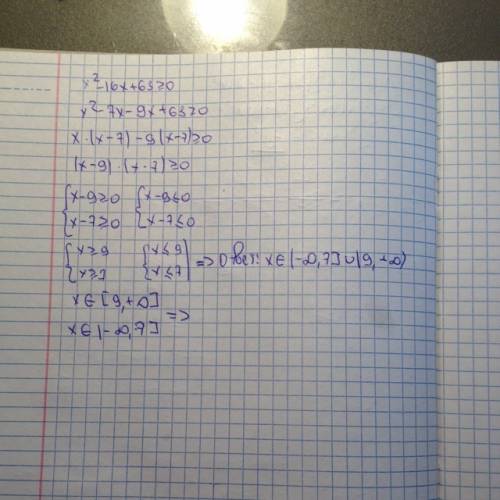 x²-16x+63≥0
x²-7x-9x+63≥0
x·(x-7)-9(x-7)≥0
(x-9)·(x-7)≥0
{x-9≥0 {x-9≤0
{x-7≥0 {x-7≤0
{x≥9 {x≤9
{x≥7 {x≤7 => Ответ: x∈(-∞,7]∪[9,+∞)
x∈[9,+∞]
x∈(-∞,7] =>